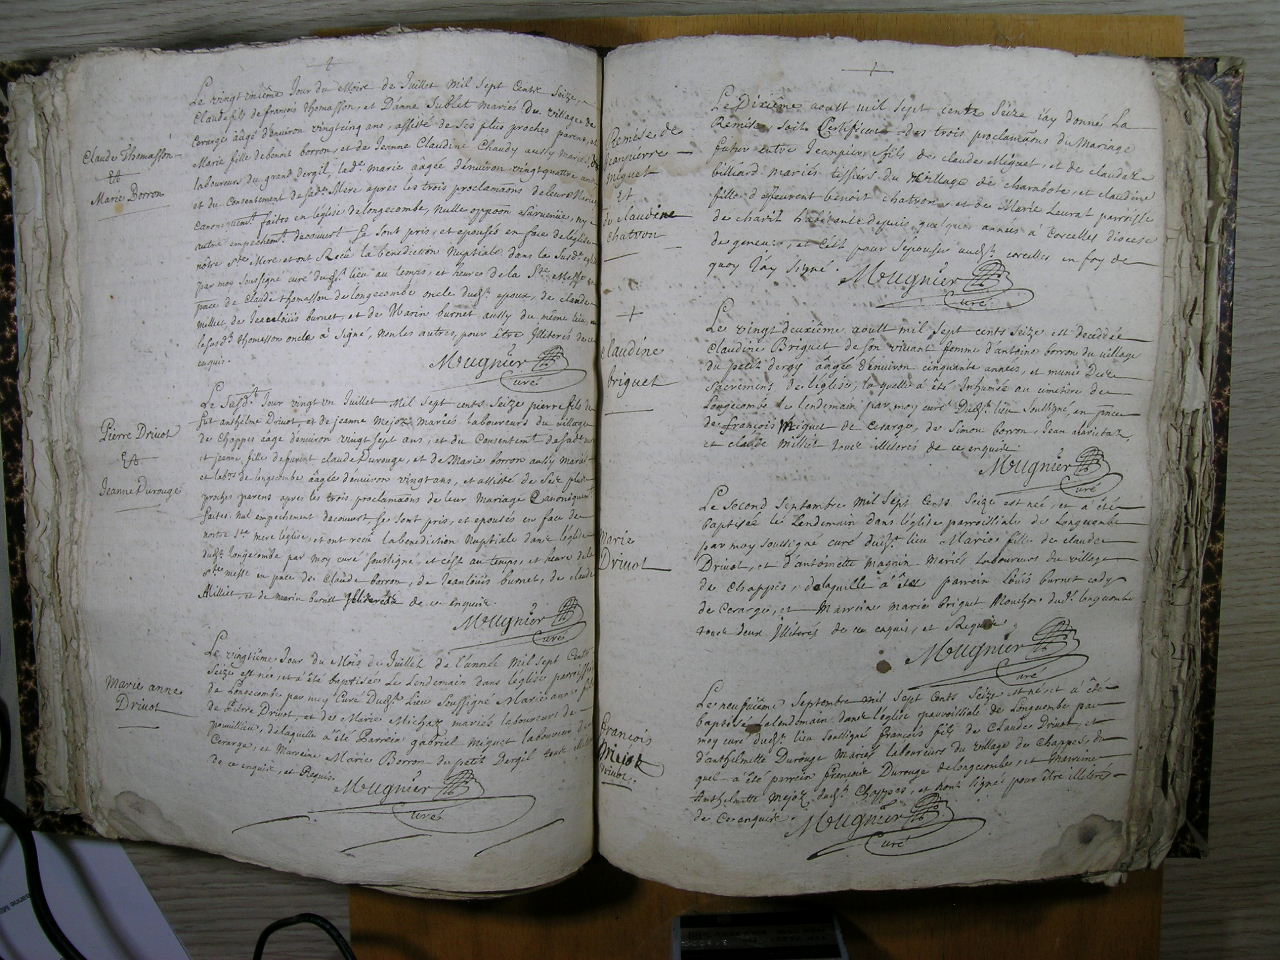 Claude Thomasson
Et
Marie Borron
Le vingt unième Jour du Mois de Juillet Mil Sept Cents Seize,
Claude fils de françois thomasson, et D'anne Sublet mariés du village de
Cerarge âagé d'environ vingtcinq ans, assisté de ses plus proches parens, et
Marie fille de benoit borron, et de Jeanne Claudine Chaudy aussy mariés
laboureurs du grand dergil, lad. marie âagée d'environ vingt quatre ans
et du Consentement de sad. Mere apres les trois proclamaõns de leur Mariage
Canoniquemt. faites en l'eglise de longecombe, nulle oppõon Survenüe, ny
autre empêchemt. decouvert se sont pris, et epousés en face de l'eglise
nôtre Ste. Mere et ont Reçu la benediction Nuptiale dans la Susd. eglise
par moy soussigné curé dud. lieu au temps, et heures de la Ste. Messe
pñce de Claude thomasson de longecombe oncle dud. epoux, de claude
milliet, de Jean loüis burnet, et de Marin burnet aussy du même lieu,
le susd. thomasson oncle a signé, Non les autres, pour être Illiterés de ce
enquis.
Mugnier
Curé
Pierre Drivot
Et
Jeanne Durouge
Le Susd. Jour vingt un Juillet Mil Sept cents Seize pierre fils de
fut anthelme Drivot, et de jeanne Mejoz Mariés laboureurs du village
de Chappes aagé denviron vingt sept ans, et du Consentemt. de sad. mere
et jeanne fille de furent claude Durouge, et de Marie borron aussy mariés
et labrs. de longecombe aagée denviron vingt ans, et assisté de ses plus
proches parens apres les trois proclamaõns de leur Mariage Canoniquemt.
faites Nul empechement decouvert se sont pris, et epousés en face de
notre Ste. mere eglise, et ont recu la benediction Nuptiale dans l'eglise
dud. longecombe par moy curé soussigné, et cest au temps, et heure de la
Ste. messe en pñce de Claude borron, de Jean loüis burnet, de claude
Milliet, et de marin burnet Illiterés de ce Enquis.
Mugnier
Curé
Marie anne
Drivot
Le vingtiéme Jour du Mois de Juillet de l'année Mil Sept Cents
Seize est née, et a été baptisée Le Lendemain dans l'eglise parroissiale
de Longecombe par moy Curé Dud. Lieu Soussigné Marie anne fille
de Pierre Drivot, et de Marie Michaz mariés laboureurs de
, de laquelle a été Parrein gabriel Miguet laboureur de
Cerarge, et Marreine Marie Borron du petit Dergil tous illiterés
de ce enquis, et Requis.
Mugnier
Curé
Remise de
Jeanpierre
Miguet
Et
de claudine
chatron
Le Dixiéme aoult mil sept cents Seize j'ay donné La
Remise, soit Certificat des trois proclamaõns du Mariage
futur entre Jeanpierre fils de claude Miguet, et de claudaz
billiard mariés tissiers du Village de charabote, et claudine
fille d'effeurent benoit chatron, et de Marie Leurat parroisse
de charil habitante depuis quelques années a Corcelles diocese
de geneve, et C'est pour s'epouser aud. corcelles en foy de
quoy J'ay signé.
Mugnier
Curé
Claudine
Briguet
Le vingt deuxiéme aoult mil Sept cents Seize est decedée
Claudine Briguet de son vivant femme d'antoine borron du village
du petit dergy aagée denviron cinquante années, et munie des
sacremens de l'eglise, laquelle a été Inhumée au cimetiere de
Longecombe le lendemain par moy curé Dud. lieu soussigné en pñce
de françois Miguet de Cerarge, de Simon borron, Jean
et claude Milliet tous illiterés de ce enquis
Mugnier
Curé
Marie
Drivot
Le Second Septembre Mil Sept Cents Seize est née, et a été
baptisée le Lendemain dans l'église parroissiale de Longecombe
par moy soussigné curé dud. lieu Marie fille de claude
Drivot, et d'antoinette magnin Mariés Laboureurs du village
de Chappes, de laquelle a été parrein Loüis burnet
de Cerarge, et Marreine Marie Briguet dud. longecombe
tous deux Illiterés de ce enquis, et Requis
Mugnier
Curé
François
Drivot.
Le neufuiéme Septembre mil Sept Cents Seize est né, et a été
baptisé le lendemain dans l'eglise parroissiale de Longecombe par
moy curé dud. lieu soussigné françois fils de Claude Drivot, et
d'anthelmette Durouge Mariés laboureurs du village de Chappes, du
quel a été parrein françois Durouge de longecombe, et Marreine
Anthelmette Mejoz dud. Chappes, et n'ont signé pour être illiterés
de Ce enquis.
Mugnier
Curé